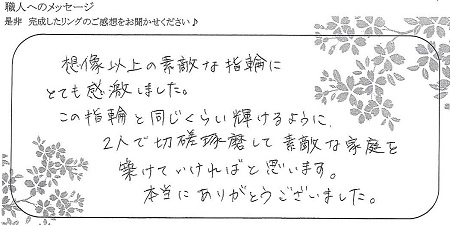 職人へのメッセージ
是非 完成したリングのご感想をお聞かせください♪
想像以上の素敵な指輪に
とても感激しました。
この指輪と同じくらい輝けるように、
2人で切磋琢磨して素敵な家庭を
築けていければと思います。
本当にありがとうございました。